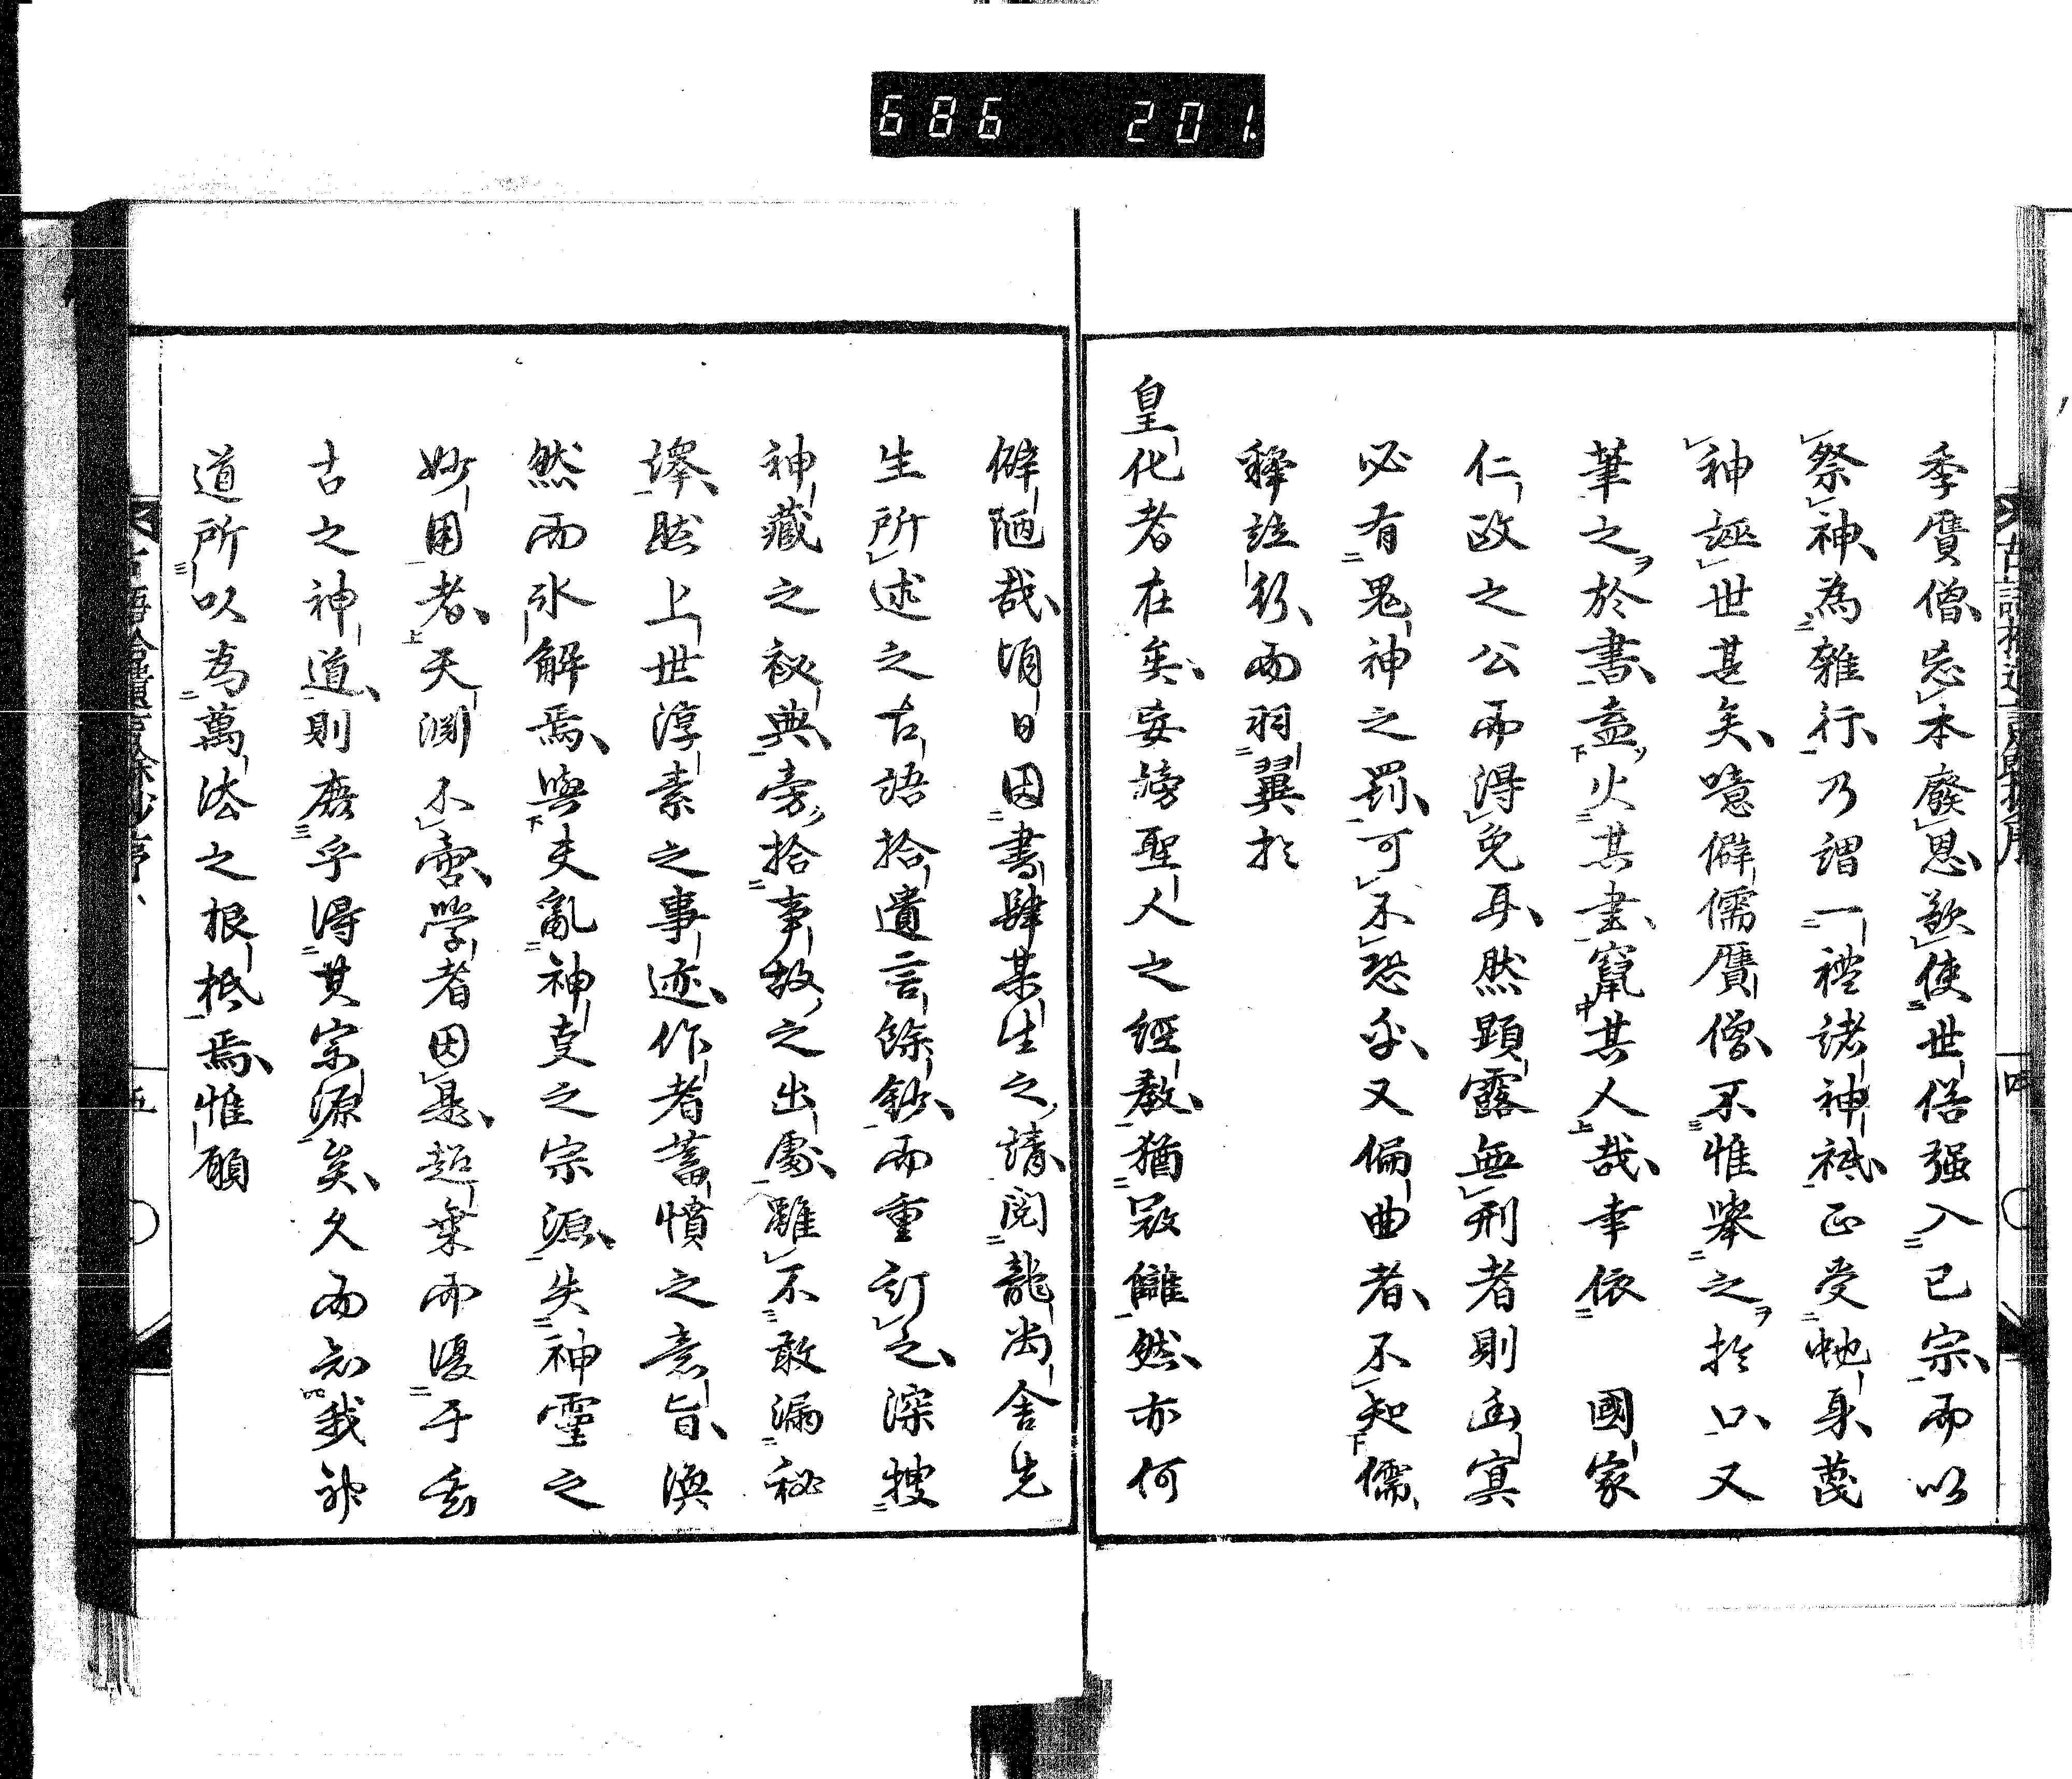 686 201
季贋僧、忘本廢恩、欲使世俗强入己宗、而以
祭神、為雜行、乃謂一禮諸神祇、正受虵身、蔑
神誣世甚矣、噫僻儒贋僧、不惟舉之於口、又
筆之於書、盍火其書、竄其人哉、幸依 國家
仁政之公而得免耳、然顕露無刑者則幽冥
必有鬼神之罰、可不恐乎、又偏曲者、不知儒、
釋竝行、而羽翼於
皇化者在矣、妄謗聖人之經教、猶寇讎然、亦何
僻陋哉、頃日因書肆某生之請、閲龍尚舎先
生所述之古語拾遺言餘鈔、而重訂之、深捜
神藏之秘典、旁拾事故之出處、雖不敢漏秘
墺、然上世淳素之事迹、作者蓄憤之意旨、渙
然而氷解焉、與夫亂神支之宗源、失神靈之
妙用者、天淵不啻、學者因是、超乗而優于乎
古之神道、則庶乎得其宗源矣、久而知我神
道所以為萬法之根柢焉、惟願
四
五